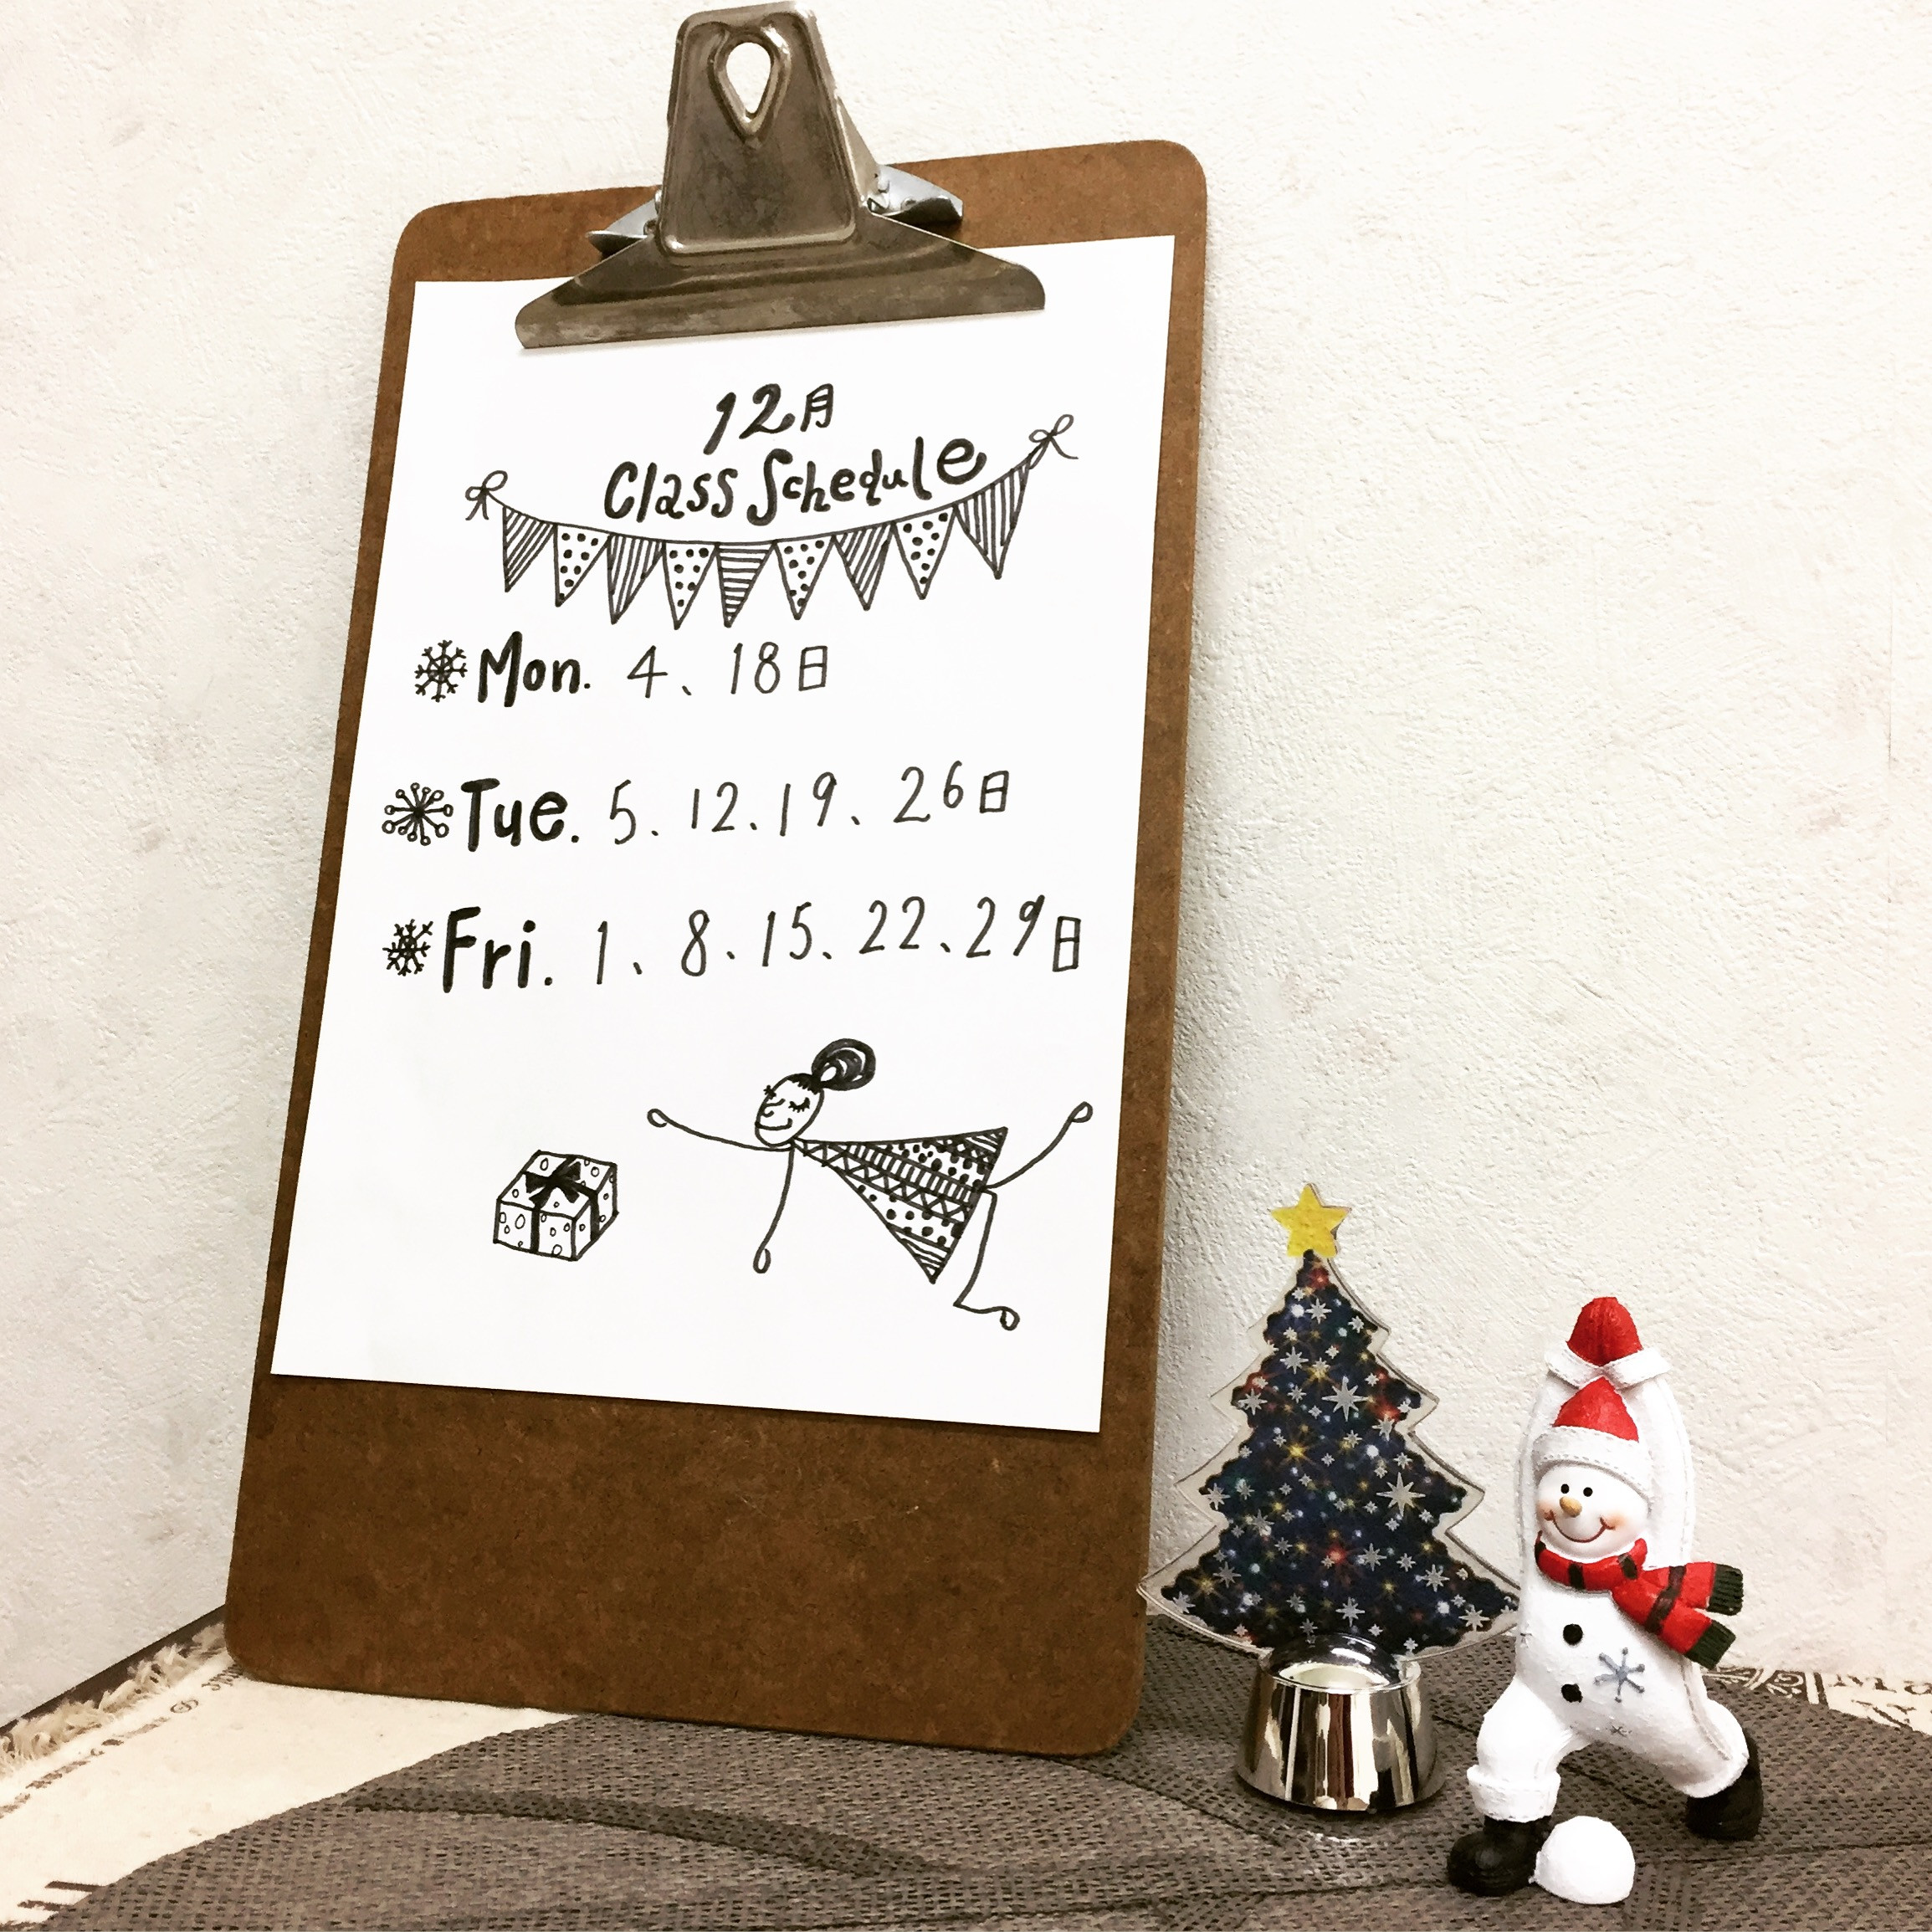 12月
Class Schedule
Mon. 4、18日
Tue. 5、12、19、26日
Fri. 1、8、15、22、29日